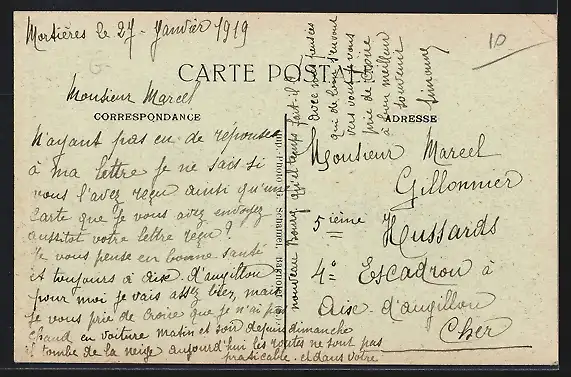 Mortières le 27 Janvier 1919
10
CARTE POSTALE
Monsieur Marcel
CORRESPONDANCE
ADRESSE
N'ayant pas eu de réponse
à ma lettre je ne sais si
vous l'avez reçu ainsi qu'un
carte que je vous avez envoyez
aussitot votre lettre reçu ?
Je vous pense en bonne santé
et toujours à Aix d'angillon
pour moi je vais assez bien, mais
je vous prie de croire que je n'ai pas
chaud en voiture matin et soir depuis dimanche
il tombe de la neige aujourd'hui les routes ne sont pas
praticable - et dans votre
nouveau Bourg qu'el temps fait-il ?
avec mes pensées
qui de loin s'envoient
vers vous je vous
prie de croire
à mon meilleur
souvenir
Simonne
Monsieur Marcel
Gillonnier
5ième Hussards
4° Escadron à
Aix-d'angillon
Cher